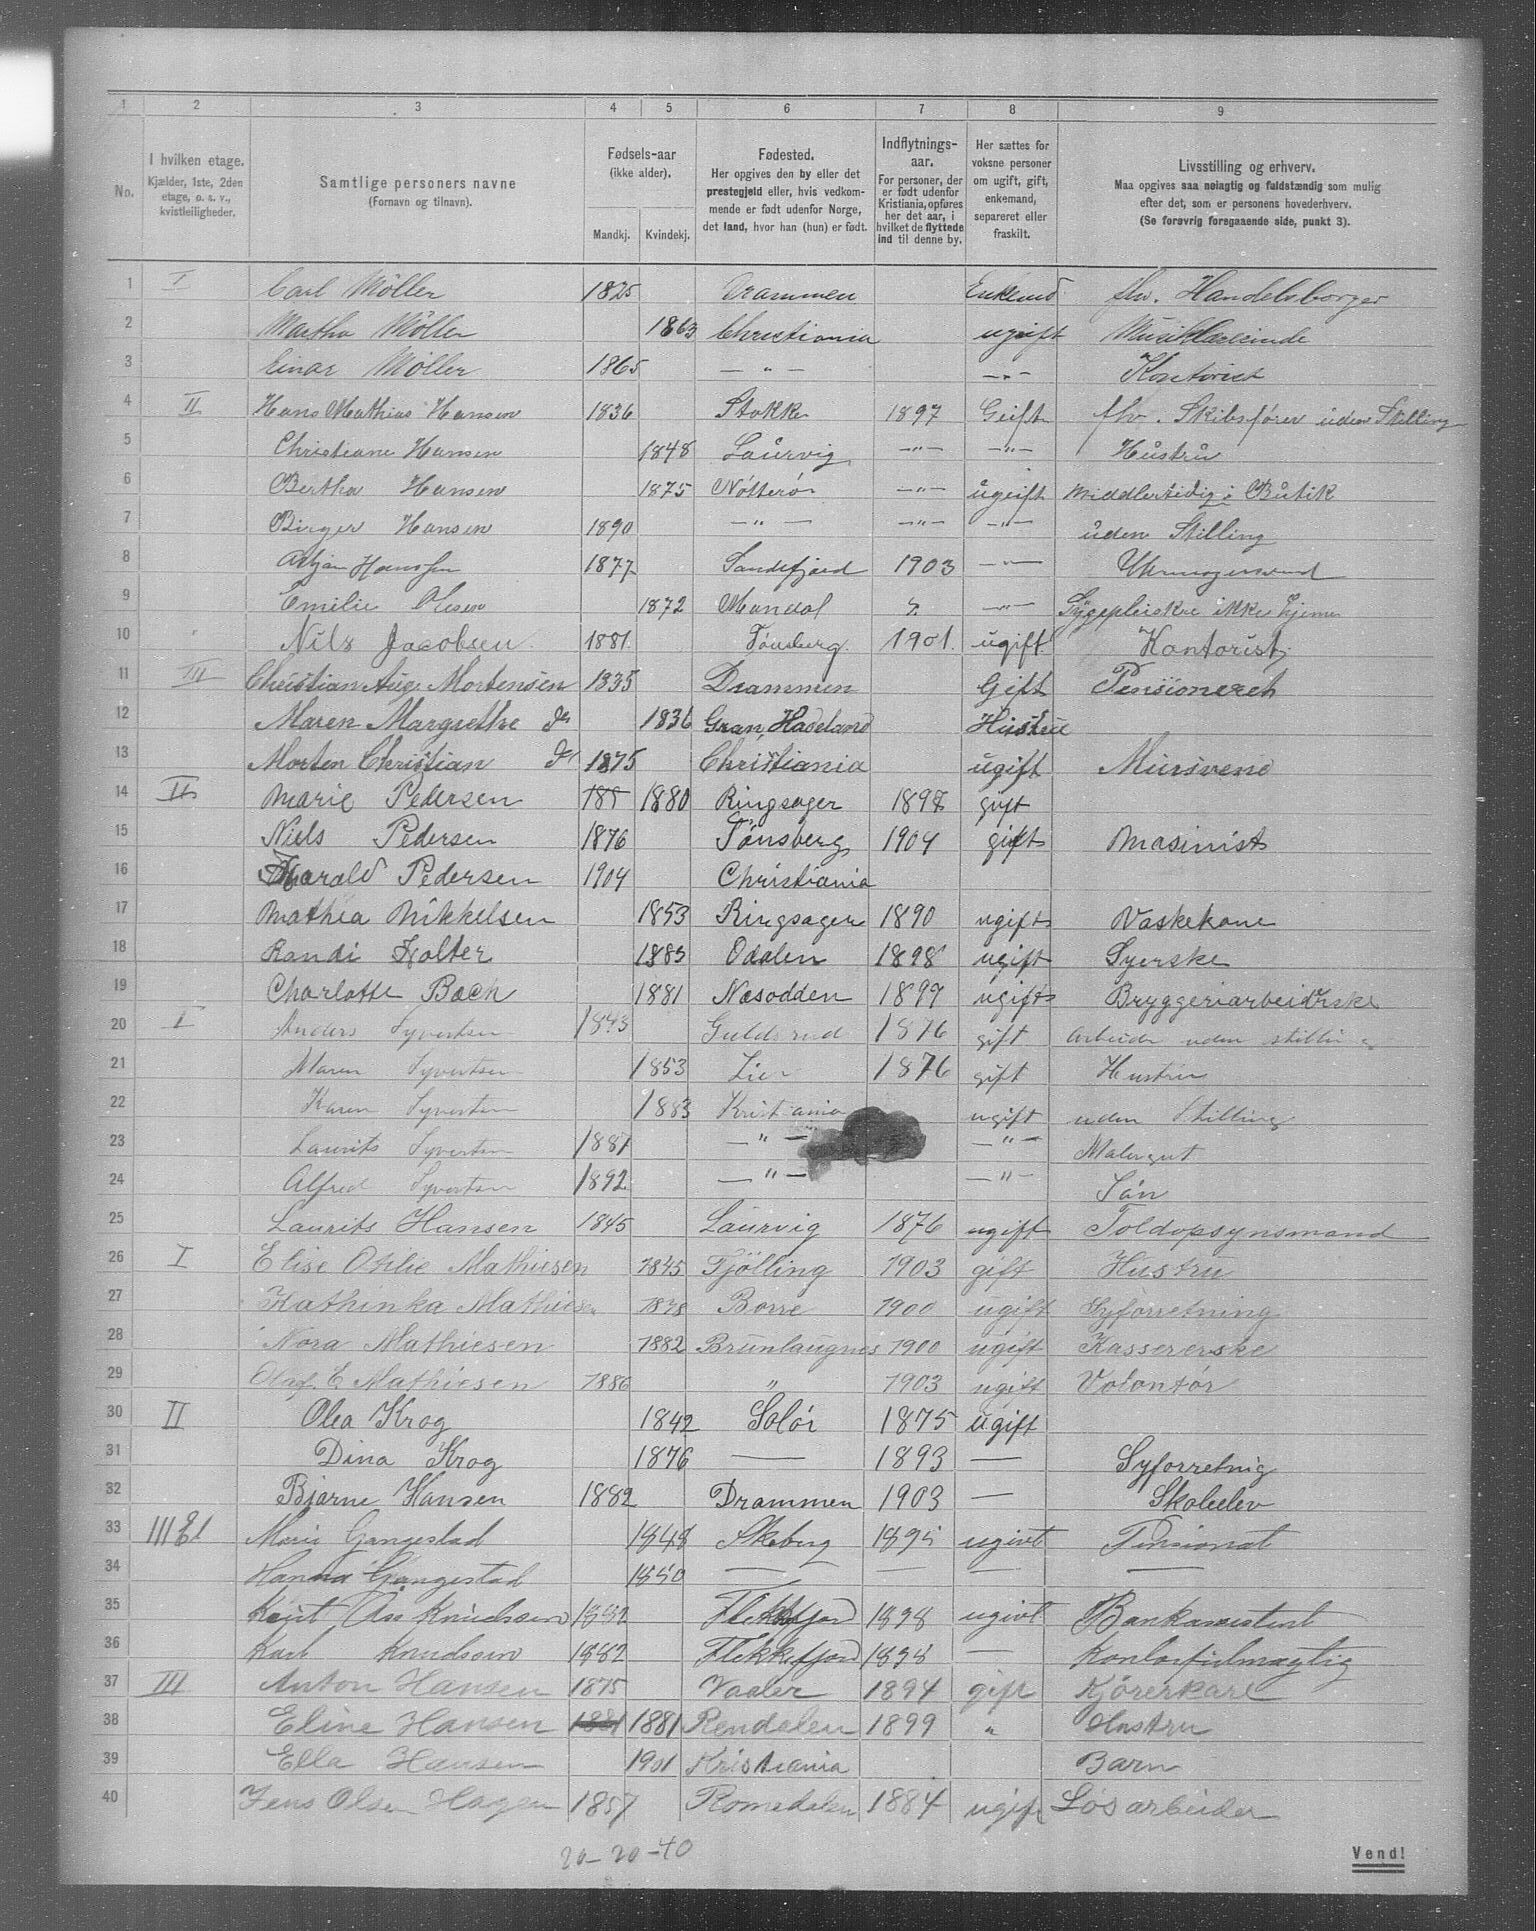 1 2 3 4 5 6 7 8 9
No. I hvilken etage. Kjælder, 1ste, 2den etage, o. s. v., kvistleiligheder. Samtlige personers navne (Fornavn og tilnavn). Fødsels-aar (ikke alder). Mandkj. Kvindekj. Fødested. Her opgives den by eller det prestegjeld eller, hvis vedkommende er født udenfor Norge, det land, hvor han (hun) er født. Indflytnings-aar. For personer, der er født udenfor Kristiania, opføres her det aar, i hvilket de flyttede ind til denne by. Her sættes for voksne personer om ugift, gift, enkemand, separeret eller fraskilt. Livsstilling og erhverv. Maa opgives saa nøiagtig og fuldstændig som mulig efter det, som er personens hovederhverv. (Se forøvrig foregaaende side, punkt 3).
1 I Carl Möller 1825 Drammen Enkemd fhv. Handelsborger
2 Martha Möller 1863 Christiania ugift Musiklærerinde
3 Einar Möller 1865 — " — — " — Kontorist
4 II Hans Mathias Hansen 1836 Stokke 1897 Gift fhv. Skibsfører uden Stilling
5 Christiane Hansen 1848 Laurvig — " — — " — Hustru
6 Bertha Hansen 1875 Nötterö — " — ugift Middlertidig i Butik
7 Birger Hansen 1890 — " — — " — — " — uden Stilling
8 Hansen 1877 Sandefjord 1903 — " —
9 Emilie Olesen 1872 Mandal — " — Sygepleiske ikke hjemme
10 Nils Jacobsen 1881 Tönsberg 1901 ugift Kontorist
11 III Christian Aug. Mortensen 1835 Drammen Gift Pensioneret
12 Maren Margrethe do 1836 Gran, Hadeland Hustrue
13 Morten Christian do 1875 Christiania ugift Mursvend
14 II Marie Pedersen 188 1880 Ringsager 1898 gift
15 Niels Pedersen 1876 Tönsberg 1904 gift Masinist
16 Harald Pedersen 1904 Christiania
17 Mathea Mikkelsen 1853 Ringsager 1890 ugift Vaskekone
18 Randi Holter 1883 Odalen 1898 ugift Syerske
19 Charlotte Bach 1881 Næsodden 1899 ugift Bryggeriarbeiderske
20 I Anders Syvertsen 1843 1876 gift Arbeider uden stilling
21 Maren Syvertsen 1853 Lier 1876 gift Hustru
22 Karen Syvertsen 1883 Kristiania ugift uden Stilling
23 Laurits Syvertsen 1887 — " — — " — Malergut
24 Alfred Syvertsen 1892 — " — — " — Sön
25 Laurits Hansen 1845 Laurvig 1876 ugift Toldopsynsmand
26 I Elise Othlie Mathiesen 1845 Tjölling 1903 gift Hustru
27 Kathinka Mathiesen 1878 Borre 1900 ugift Syforretning
28 Nora Mathiesen 1882 Brunlaugnes 1900 ugift Kassererske
29 Olaf E Mathiesen 1886 " 1903 ugift Volontör
30 II Olea Krog 1842 Solör 1875 ugift
31 Dina Krog 1876 — 1893 — Syforretnig
32 Bjarne Hansen 1882 Drammen 1903 — Skoleelev
33 III Et Marie Gangestad 1848 Skeberg 1895 ugivt Pensionat
34 Hanna Gangestad 1850 — — — —
35 Knut Knudsen 1882 Flekkefjord 1898 ugivt Bankassistent
36 Karl Knudsen 1882 Flekkefjord 1898 — Kontorfulmægtig
37 III Anton Hansen 1875 Vaaler 1894 gift Kjörerkarl
38 Eline Hansen 1881 1881 Rendalen 1899 " Hustru
39 Ella Hansen 1901 Kristiania Barn
40 Jens Olsen Hagen 1857 Romedalen 1884 ugift Lösarbeider
20 - 20 - 40
Vend!